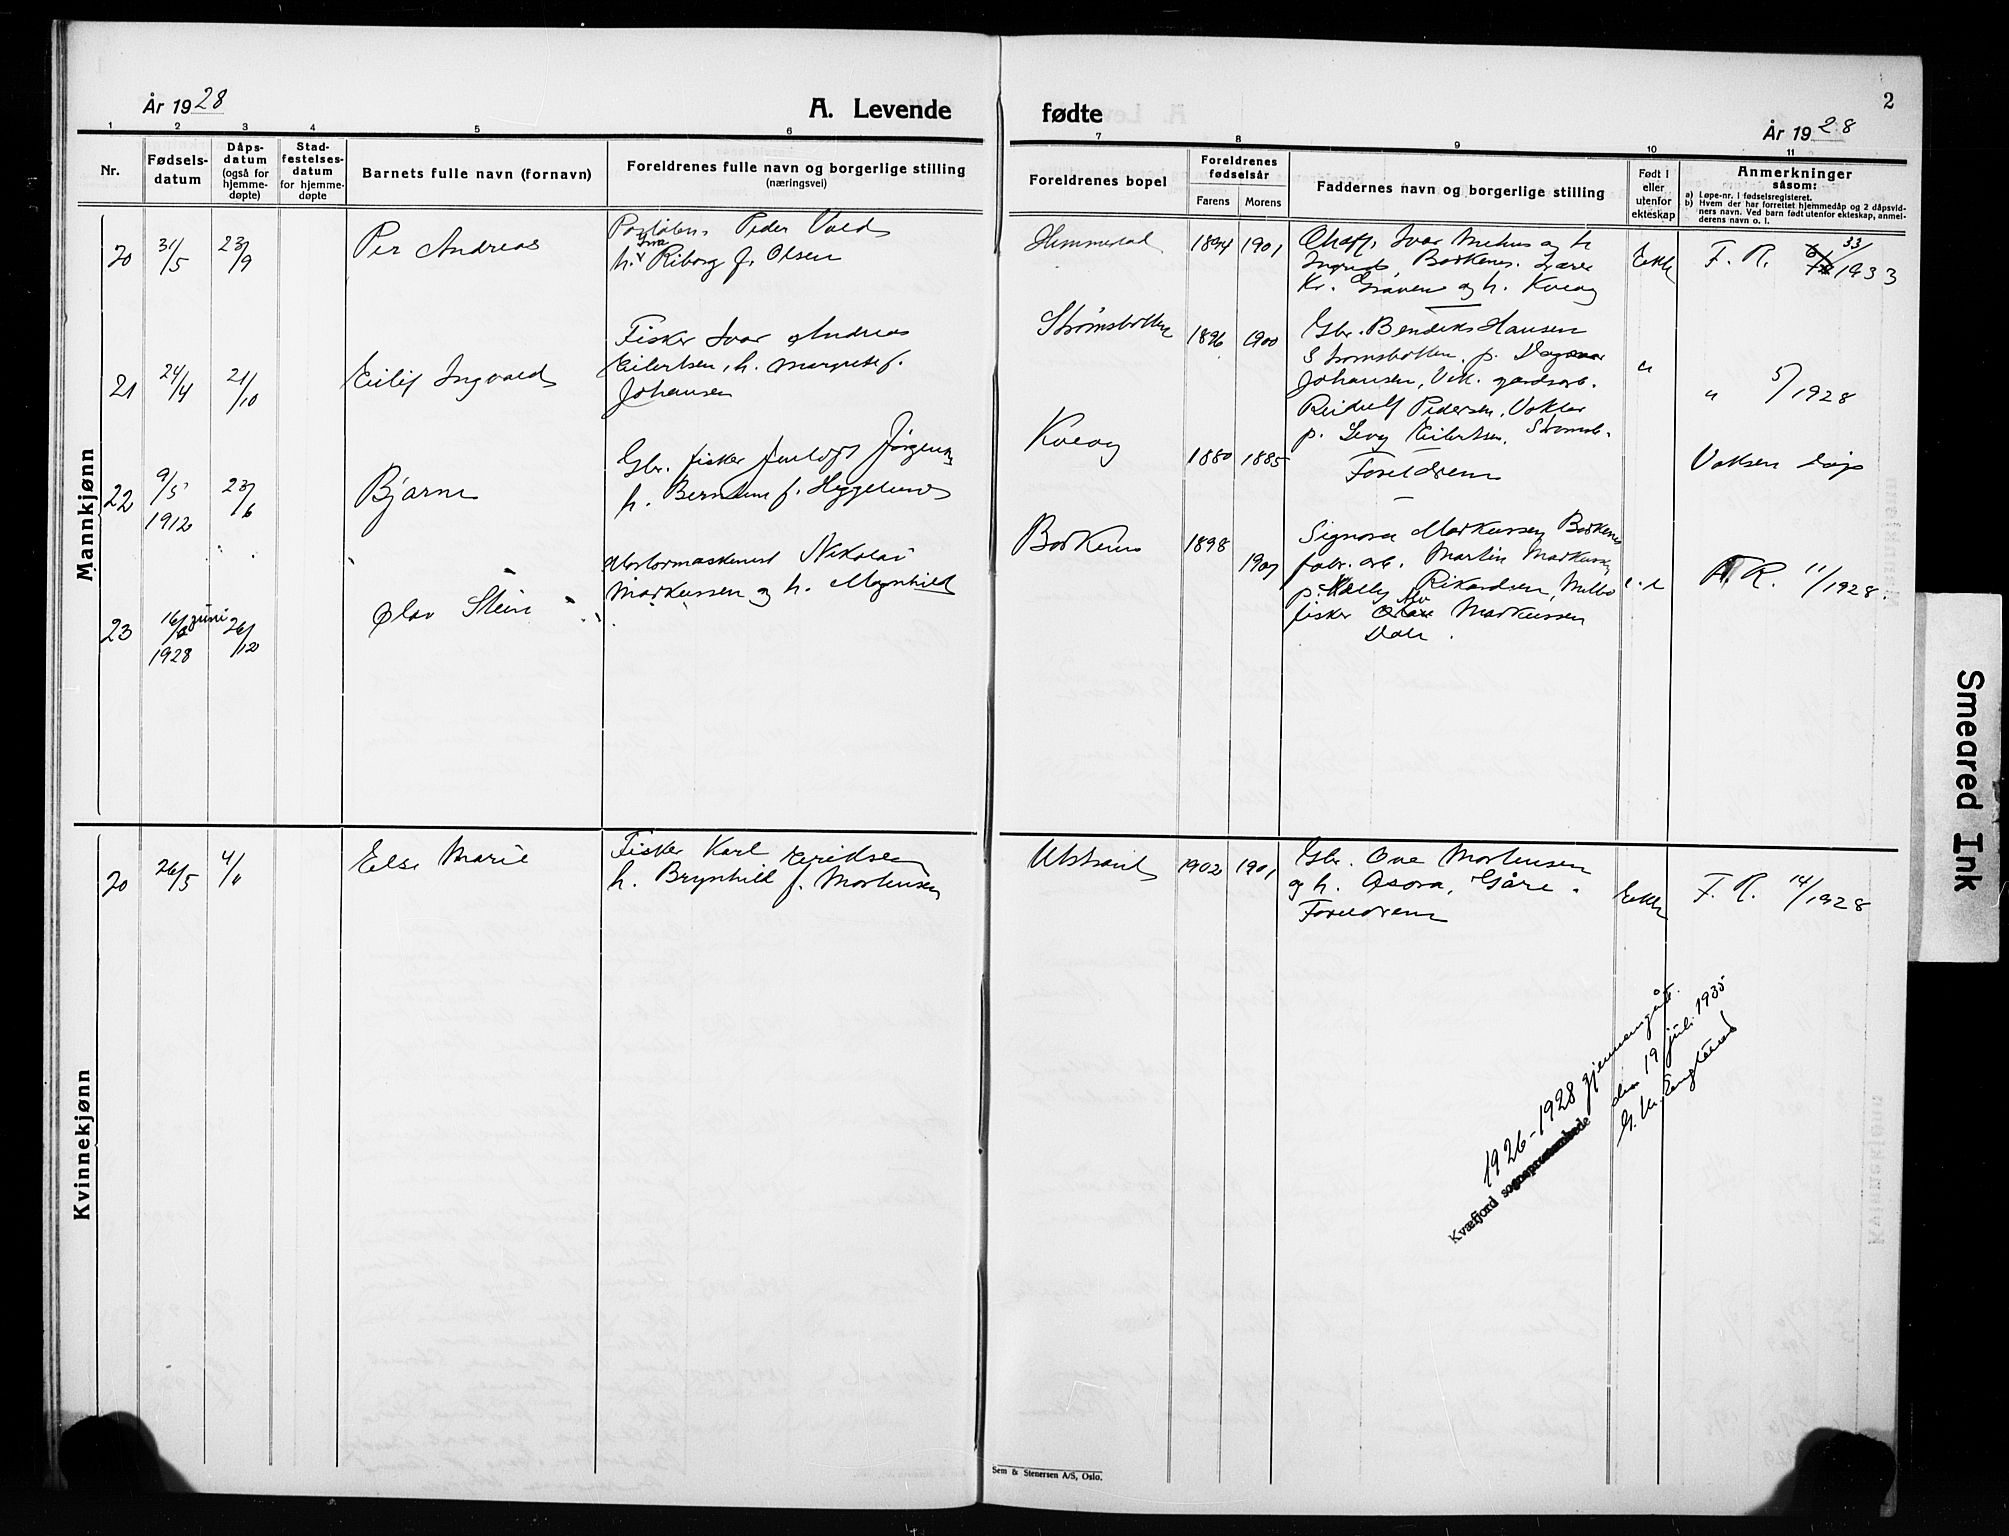 År 1928
A. Levende fødte
2
År 1928
1 2 3 4 5 6 7 8 9 10 11
Nr.
Fødsels-
datum
Dåps-
datum
(også for
hjemme-
døpte)
Stad-
festelses-
datum
for hjemme-
døpte
Barnets fulle navn (fornavn)
Foreldrenes fulle navn og borgerlige stilling
(næringsvei)
Foreldrenes bopel
Foreldrenes
fødselsår
Farens
Morens
Faddernes navn og borgerlige stilling
Født i
eller
utenfor
ekteskap
Anmerkninger
såsom:
a) Løpe-nr. i fødselsregisteret.
b) Hvem der har forrettet hjemmedåp og 2 dåpsvid-
ners navn. Ved barn født utenfor ekteskap, anmel-
derens navn o. l.
Mannkjønn
20 31/5 23/9 Per Andreas
Peder
h. Riborg f. Olsen
1894 1901
Ivar Mehus og h.
Ingrid, Borkenes. Lærer
Kr. og h. Kveøy
Ekte
F. R. 33/1933
21 24/4 21/10 Eilif Ingvald
Fisker Ivar Andreas
Eilertsen, h. Margrete f.
Johansen
Strømsbotten 1896 1900
Gbr. Bendiks Hansen
Strømsbotten, p. Dagmar
Johansen, Vik. gårdsarb.
Reidulf Pedersen,
p. Levy Eilertsen, Strømsb.
" " 5/1928
22 9/5 1912 23/6 Bjarne
Gbr. fisker
h. f. Heggelund
Kveøy 1880 1885
Foreldrene
Voksen dåp
23 16/6 juni 1928 26/12 Olav Stein
Motormaskinist Nikolai
Markussen og h. Magnhild
Borkenes 1898
Signora Markussen Borkenes
fabr. arb. Martin Markussen
p. Rikardsen, Melbo
fisker Markussen
Dale.
F. R. 11/1928.
Kvinnekjønn
20 26/5 Else Marie
Fisker Karl Eriksen
h. Brynhild f. Mortensen
Utstrand 1902 1901
Gbr. Ove Mortensen
og h. Asora, Gåre.
Foreldrene
Ekte
F. R. 14/1928
1926-1928 gjennemgått.
Kvæfjord sogneprestembede den 19 juli 1935
Sem & Stenersen A/S, Oslo.
Smeared Ink